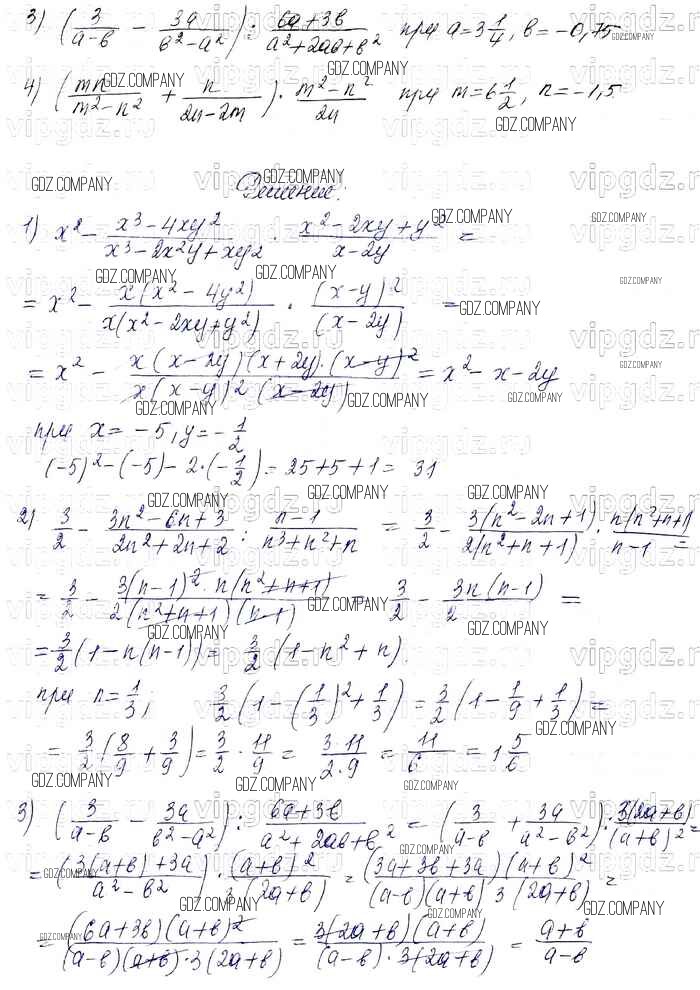 3) (3/(a-b) - 3a/(b²-a²)) : (6a+3b)/(a²+2ab+b²) при a=3 1/4, b=-0,75
4) (mn/(m²-n²) + n/(2n-2m)) · (m²-n²)/(2n) при m=6 1/2, n=-1,5
Решение:
1) x² - (x³-4xy²)/(x³-2x²y+xy2) · (x²-2xy+y²)/(x-2y) =
= x² - x(x²-4y²)/(x(x²-2xy+y²)) · (x-y)²/(x-2y) =
= x² - x(x-2y)(x+2y)·(x-y)²/(x(x-y)2(x-2y)) = x²-x-2y
при x=-5, y=-1/2
(-5)²-(-5)-2·(-1/2)=25+5+1=31
2) 3/2 - (3n²-6n+3)/(2n²+2n+2) : (n-1)/(n³+n²+n) = 3/2 - 3(n²-2n+1)/(2(n²+n+1)) · n(n²+n+1)/(n-1) =
= 3/2 - 3(n-1)²·n(n²+n+1)/(2(n²+n+1)(n-1)) = 3/2 - 3n(n-1)/2 =
= 3/2 (1-n(n-1)) = 3/2 (1-n²+n).
при n=1/3; 3/2 (1-(1/3)²+1/3) = 3/2 (1-1/9+1/3) =
= 3/2 (8/9 + 3/9) = 3/2 · 11/9 = 3·11/(2·9) = 11/6 = 1 5/6
3) (3/(a-b) - 3a/(b²-a²)) : (6a+3b)/(a²+2ab+b²) = (3/(a-b) + 3a/(a²-b²)) : 3(2a+b)/(a+b)² =
= (3(a+b)+3a)/(a²-b²) · (a+b)²/(3(2a+b)) = (3a+3b+3a)(a+b)²/((a-b)(a+b) 3(2a+b)) =
= (6a+3b)(a+b)²/((a-b)(a+b)·3(2a+b)) = 3(2a+b)(a+b)/((a-b)·3(2a+b)) = (a+b)/(a-b)
GDZ.COMPANY
vipgdz.ru